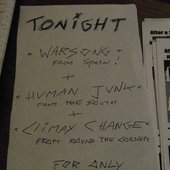 TONIGHT
* WARSONG *
FROM SPAIN!
+
* HUMAN JUNK *
FROM THE SOUTH
+
* CLIMAX CHANGE *
FROM ROUND THE CORNER
FOR ONLY
After a